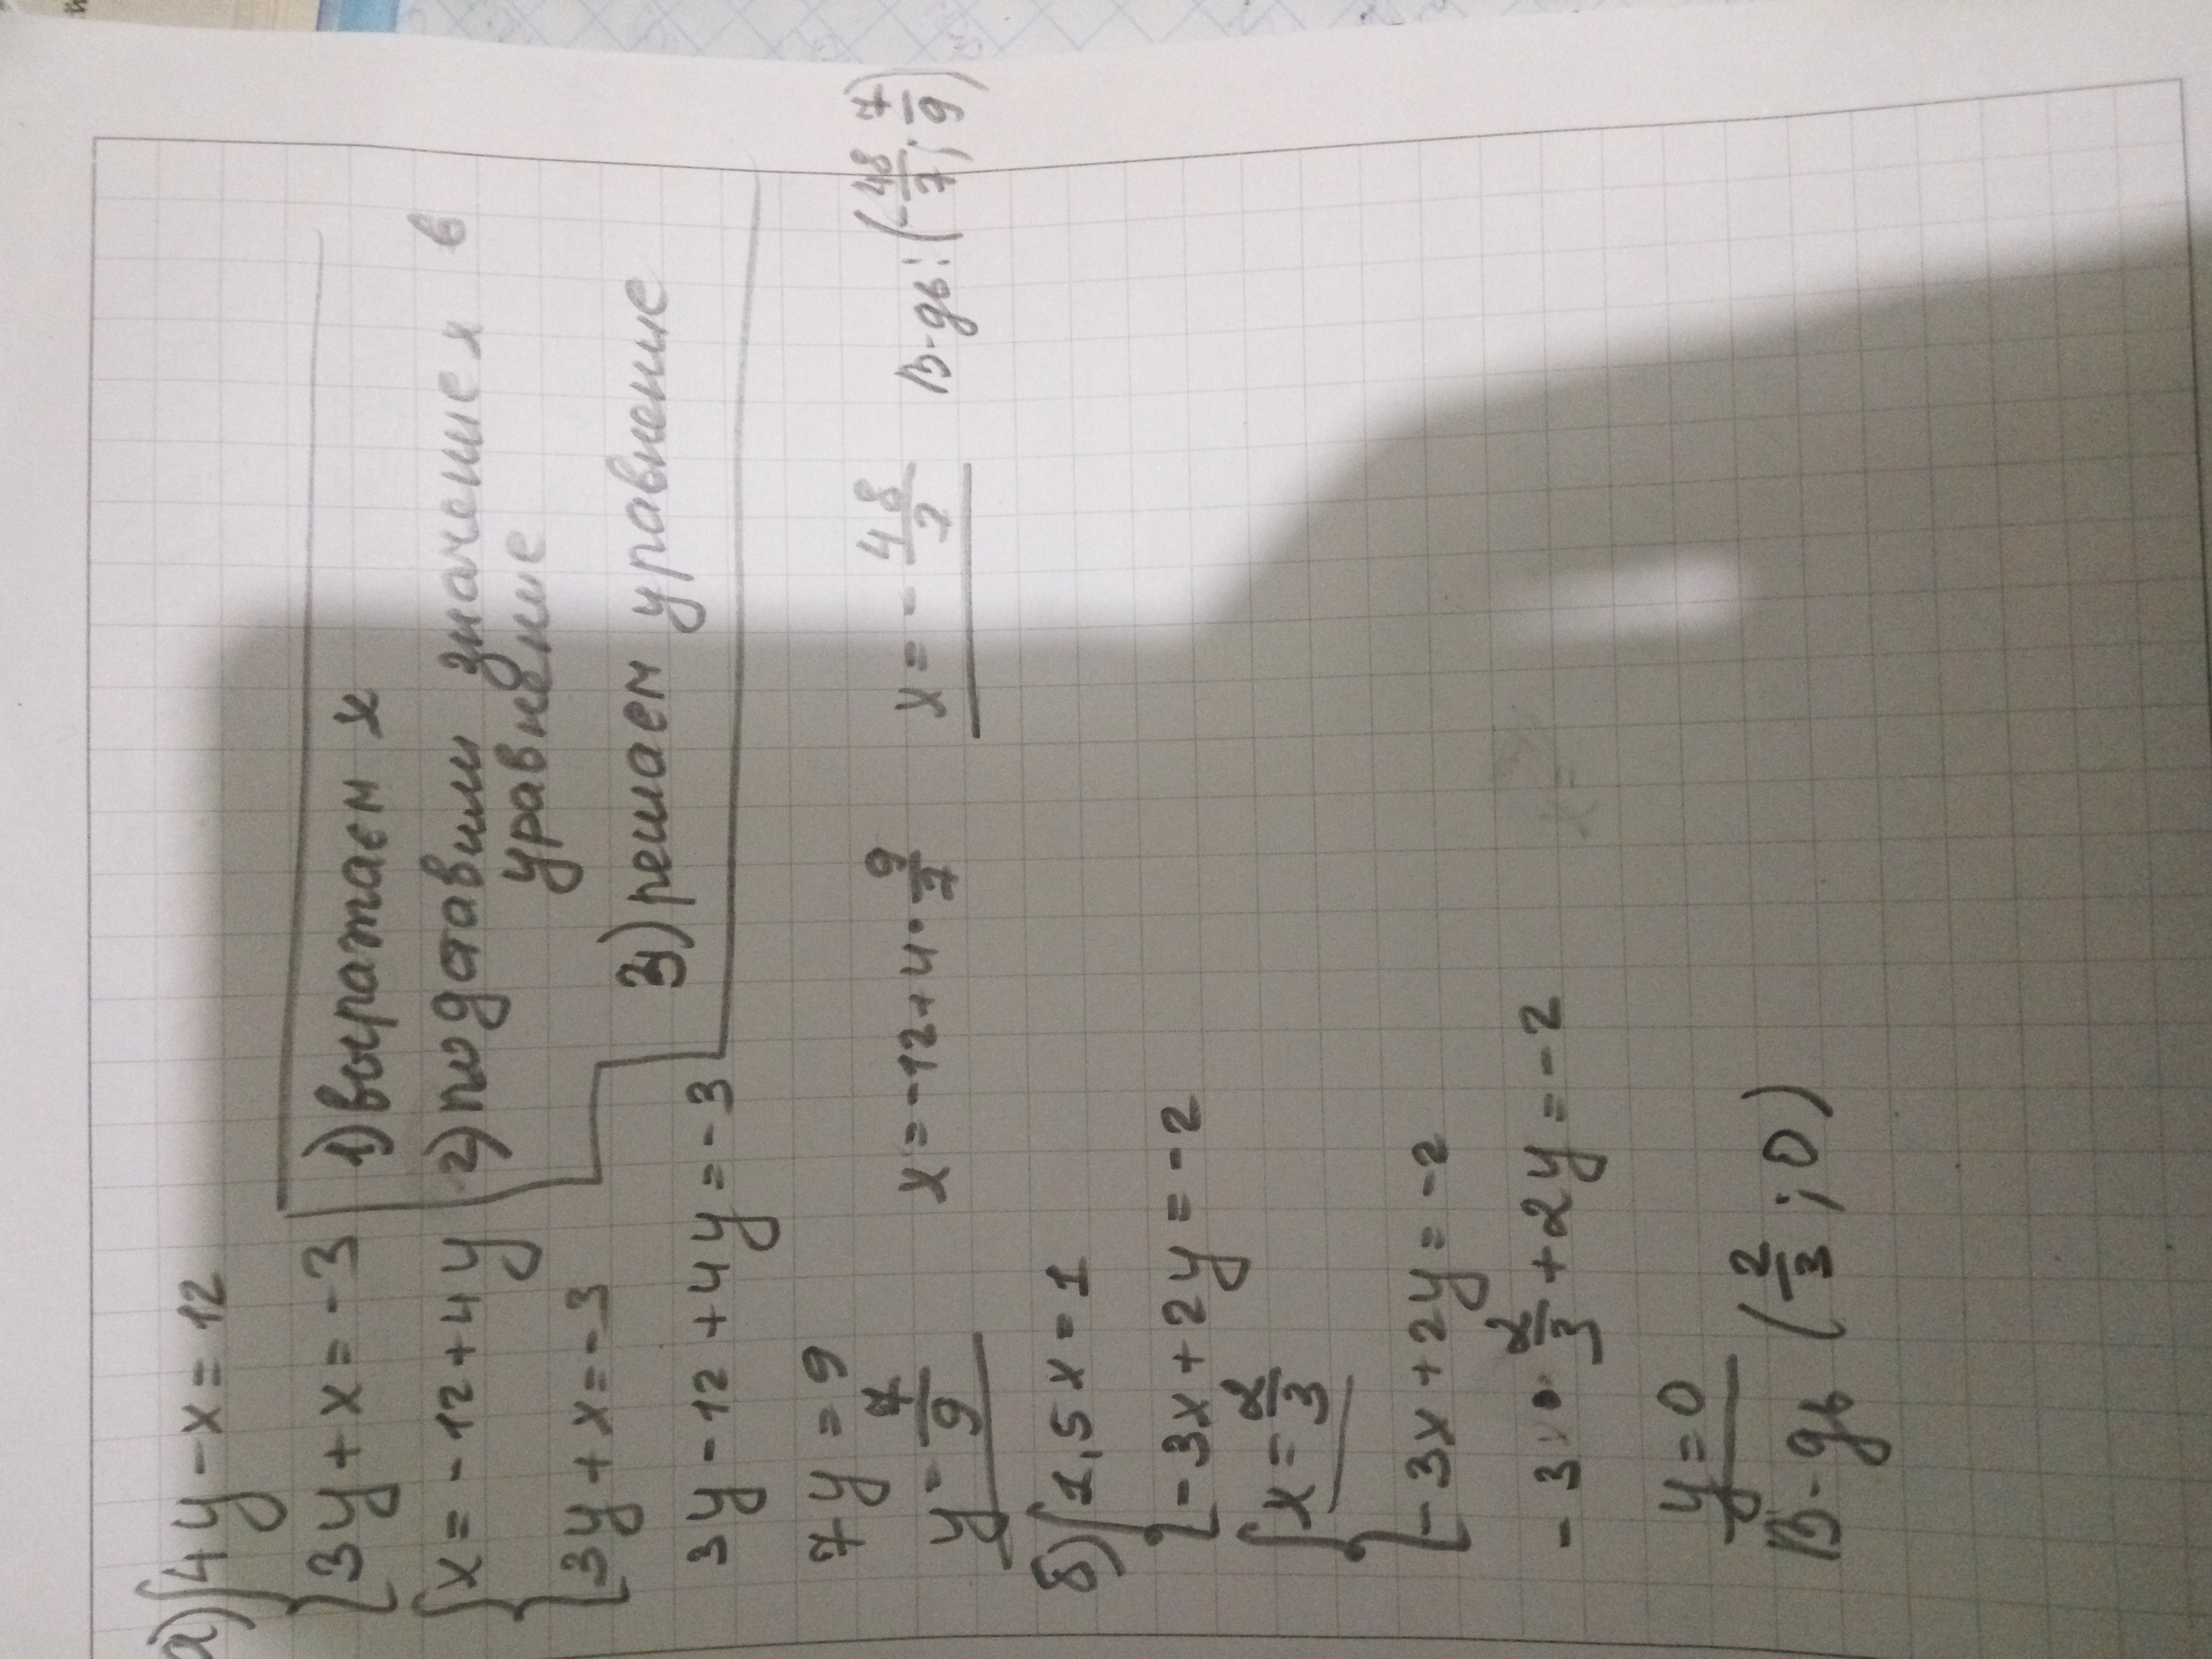 а) {4y - x = 12
{3y + x = -3
{x = -12 + 4y
{3y + x = -3
1) выражаем x
2) подставили значение x в
уравнение
3) решаем уравнение
3y - 12 + 4y = -3
7y = 9
y = 7/9
x = -12 + 4 · 9/7
x = - 48/7
В-дь: (-48/7; 7/9)
б) {1,5x = 1
{-3x + 2y = -2
{x = 2/3
{-3x + 2y = -2
-3 · 2/3 + 2y = -2
y = 0
В-дь (2/3; 0)